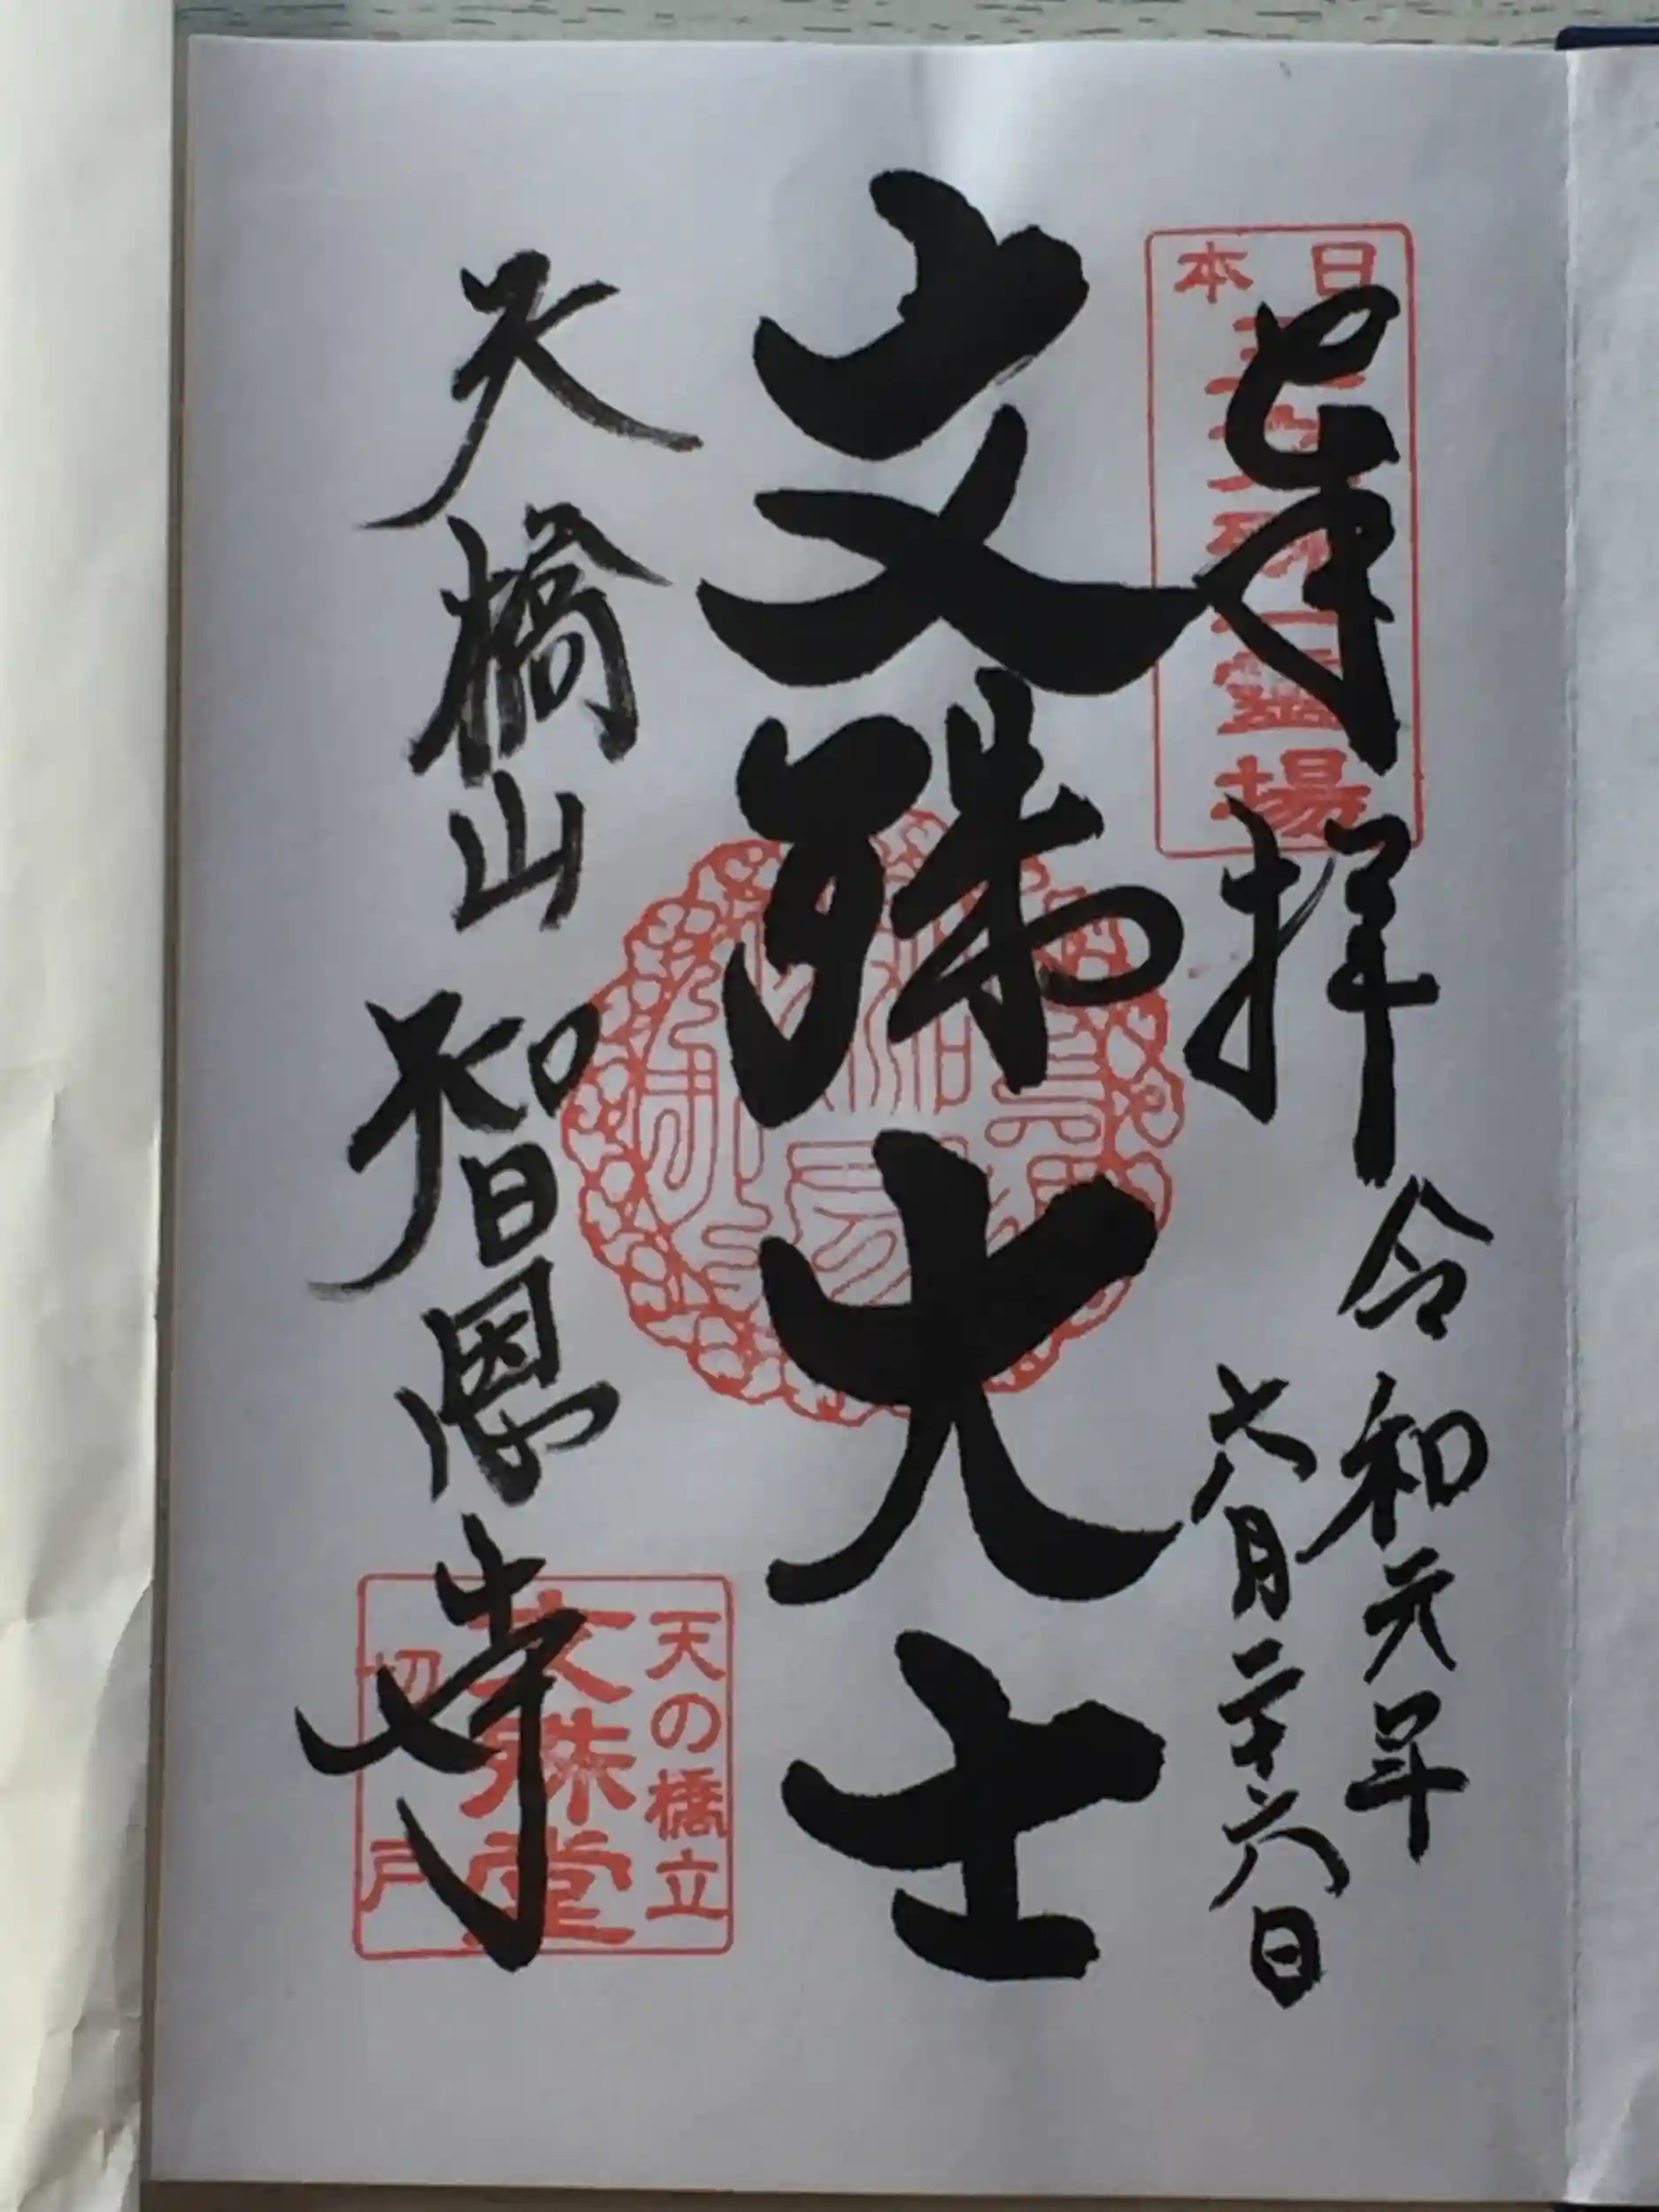 奉拝
日本
三文殊
霊場
令和元年
六月二十六日
文殊大士
天橋山智恩寺
天の橋立
文殊堂
切戸